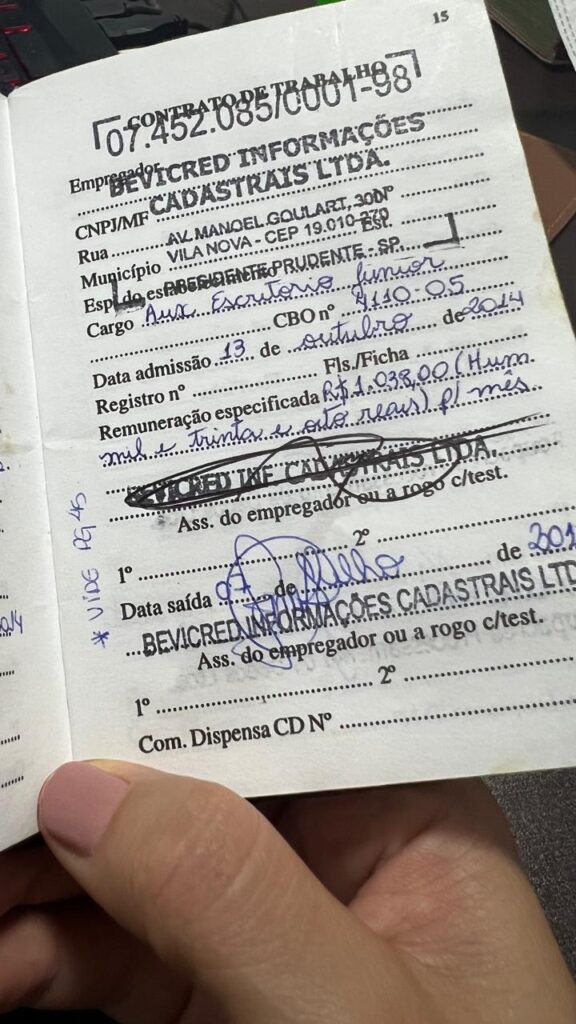 15
CONTRATO DE TRABALHO
07.452.085/0001-98
Empregador
BEVICRED INFORMAÇÕES
CADASTRAIS LTDA.
CNPJ/MF
Rua AV. MANOEL GOULART, 300 Nº
Município VILA NOVA - CEP 19.010-270 Est.
Esp. do estabelecimento PRESIDENTE PRUDENTE - SP
Cargo Aux Escritorio Junior
CBO nº 4110-05
Data admissão 13 de outubro de 2014
Registro nº Fls./Ficha
Remuneração especificada R$ 1.038,00 (Hum
mil e trinta e oito reais) p/ mês
BEVICRED INF CADASTRAIS LTDA.
Ass. do empregador ou a rogo c/test.
1º 2º
* VIDE PG 45
Data saída 07 de Julho de 201
BEVICRED INFORMAÇÕES CADASTRAIS LTD
Ass. do empregador ou a rogo c/test.
1º 2º
Com. Dispensa CD Nº